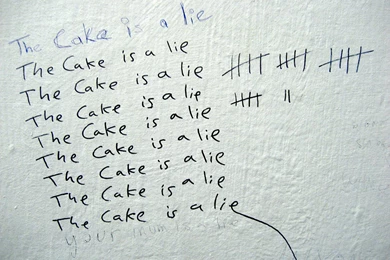 The Cake is a lie
The Cake is a lie
The Cake is a lie
The Cake is a lie
The Cake is a lie
The Cake is a lie
The Cake is a lie
The Cake is a lie
The Cake is a lie
your mum is